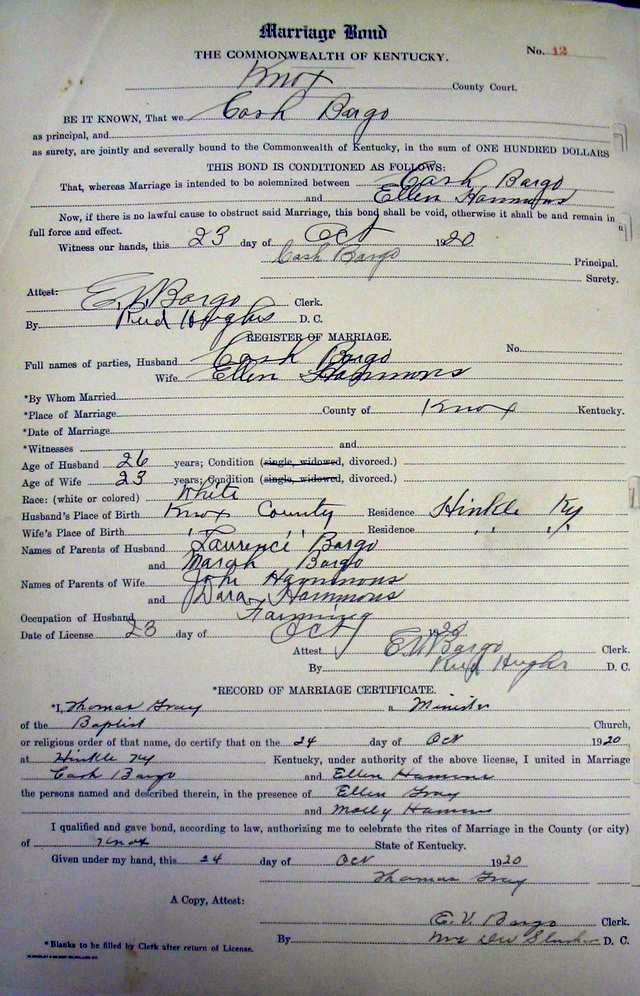 Marriage Bond
THE COMMONWEALTH OF KENTUCKY. No. 12
Knox County Court.
BE IT KNOWN, That we Cash Bargo
as principal, and
as surety, are jointly and severally bound to the Commonwealth of Kentucky, in the sum of ONE HUNDRED DOLLARS
THIS BOND IS CONDITIONED AS FOLLOWS:
That, whereas Marriage is intended to be solemnized between Cash Bargo
and Ellen Hammons
Now, if there is no lawful cause to obstruct said Marriage, this bond shall be void, otherwise it shall be and remain in
full force and effect.
Witness our hands, this 23 day of Oct 1920
Cash Bargo Principal.
Surety.
Attest: E. V. Bargo Clerk.
By Hughs D. C.
REGISTER OF MARRIAGE.
Full names of parties, Husband Cash Bargo No.
Wife Ellen Hammons
*By Whom Married
*Place of Marriage County of Knox Kentucky.
*Date of Marriage
*Witnesses and
Age of Husband 26 years; Condition (single, widowed, divorced.)
Age of Wife 23 years; Condition (single, widowed, divorced.)
Race: (white or colored) White
Husband's Place of Birth Knox County Residence Hinkle Ky
Wife's Place of Birth " " Residence " "
Names of Parents of Husband Laurence Bargo
and Marah Bargo
Names of Parents of Wife John Hammons
and Dara Hammons
Occupation of Husband Farming
Date of License 23 day of Oct 1920
Attest E. V. Bargo Clerk.
By Hughs D. C.
*RECORD OF MARRIAGE CERTIFICATE.
*I, Thomas Gray a Minister
of the Baptist Church,
or religious order of that name, do certify that on the 24 day of Oct 1920
at Hinkle Ky Kentucky, under authority of the above license, I united in Marriage
Cash Bargo and Ellen Hammons
the persons named and described therein, in the presence of Ellen Gray
and Molly Hammons
I qualified and gave bond, according to law, authorizing me to celebrate the rites of Marriage in the County (or city)
of Knox State of Kentucky.
Given under my hand, this 24 day of Oct 1920
Thomas Gray
A Copy, Attest:
E. V. Bargo Clerk.
*Blanks to be filled by Clerk after return of License. By D. C.